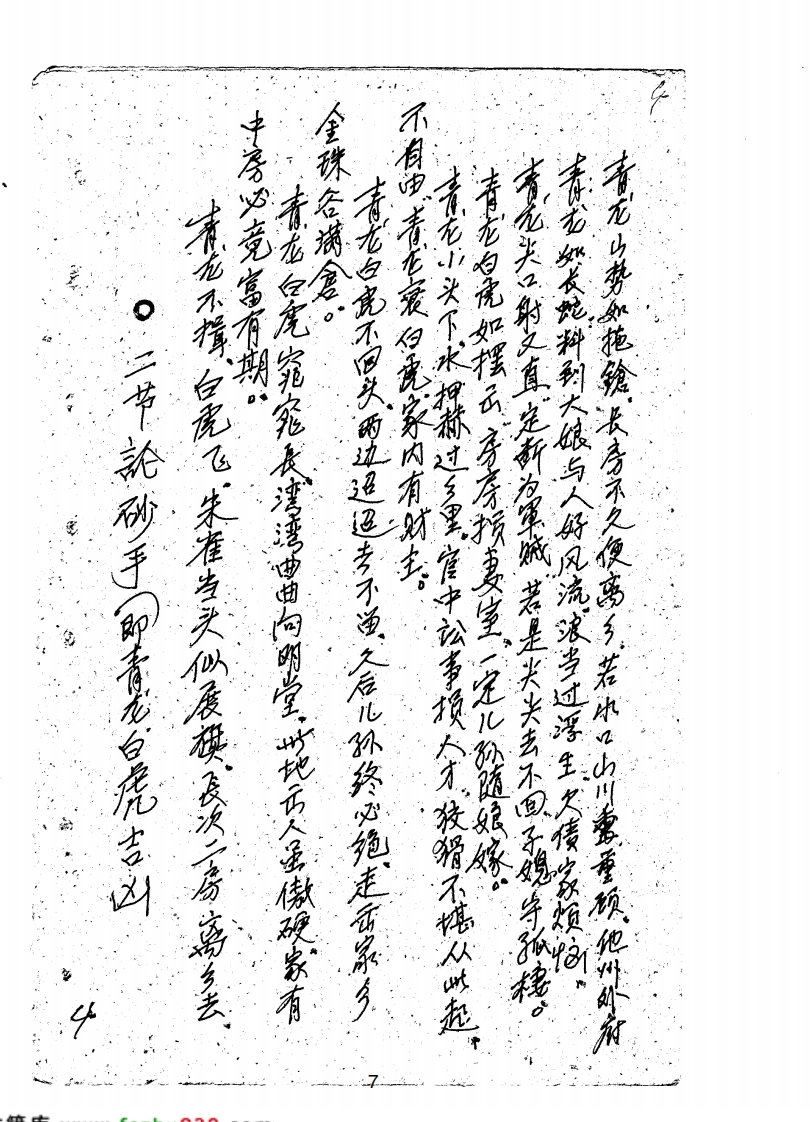 二节論砂手(即青龙白虎吉凶
青龙不揖、白虎飞。朱雀当头似展棋。长次二房离乡去、
中房必竟富有期。
青龙白虎窕窕長。湾湾曲曲向明堂。此地出人虽傲硬。家有
金珠谷满倉。
青龙白虎不回头、两边迢迢去不留。久后儿孙终必绝。走出家乡
不自由。青龙衮白虎、家内有财主。
青龙小头下水、押赫过乡里。官中訟事損人才、狡猾不堪从此起。
青龙白虎如摆出、房房損妻室。一定儿孙随娘嫁。
青龙尖口射又直、定断为軍贼、若是尖尖去不回、子媳守孤棲。
青龙如长蛇、料到大娘与人好风流。浪当过浮生、欠债家烦恼。
青龙山勢如掩鎗。长房不久便离乡。若水口山川重重顾。他州外府
4
7